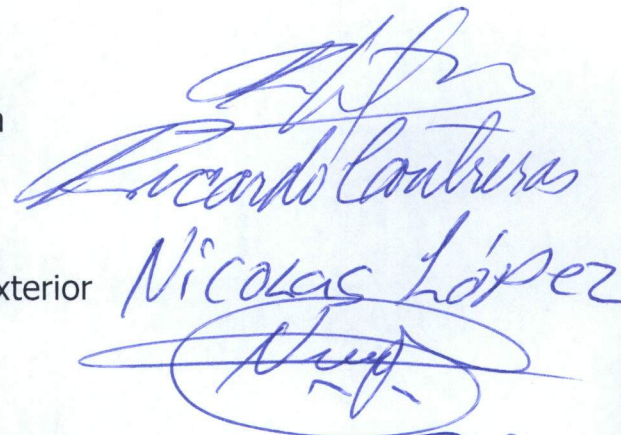 Ricardo Contreras
xterior Nicolas López